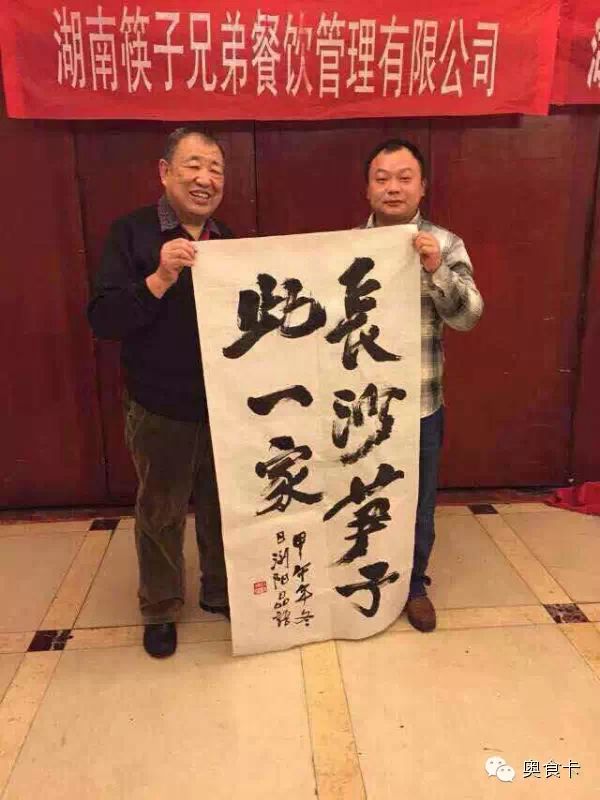 湖南筷子兄弟餐饮管理有限公司
長沙笋子
此一家
甲午年冬
日浏阳品
奥食卡